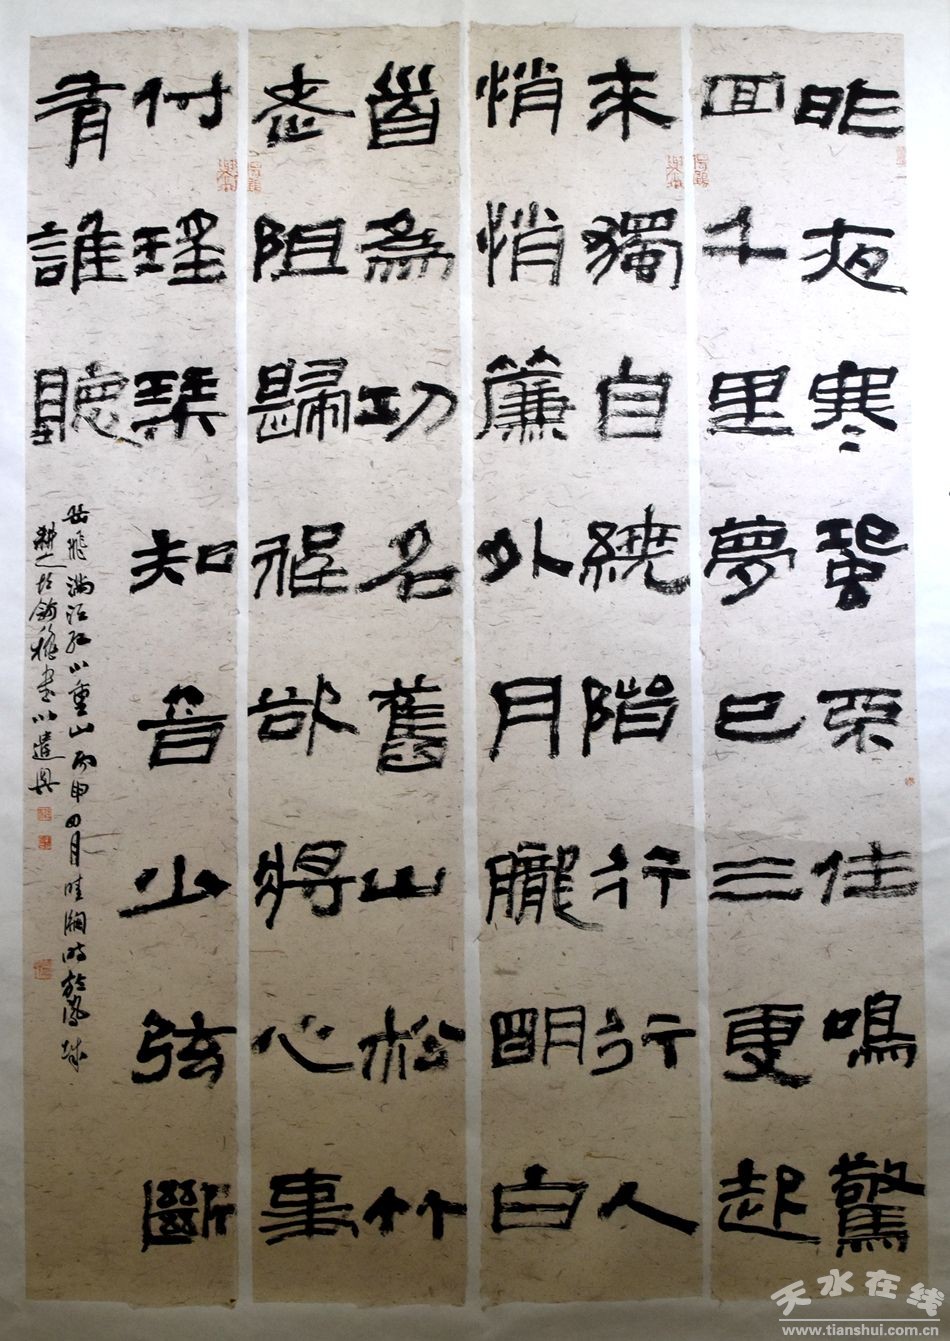 昨夜寒蛩不住鳴驚
回千里夢已三更起
來獨自繞階行行人
悄悄簾外月朧明白
首為功名舊山松竹
老阻歸程欲將心事
付瑤琴知音少弦斷
有誰聽
岳飛滿江紅小重山丙申四月晴時於鳳城
書以遣興
天水在线
www.tianshui.com.cn